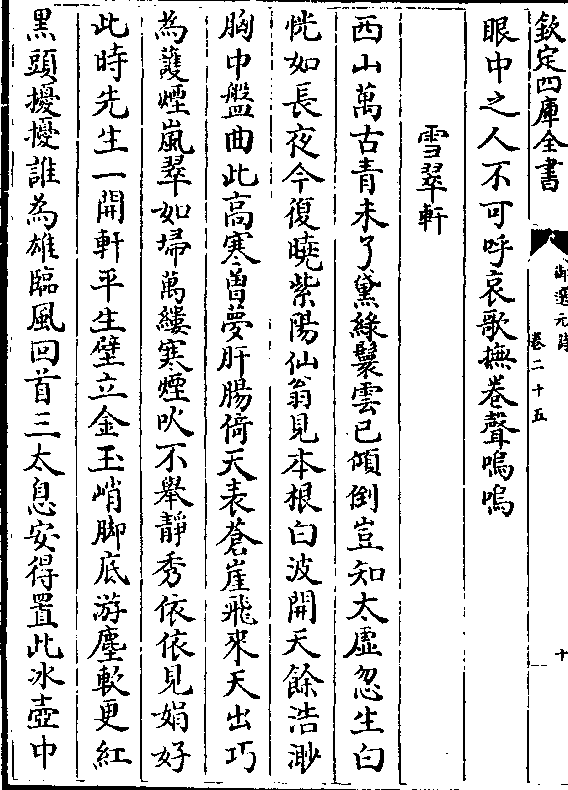 欽定四庫全書
御選元詩
卷二十五
十
眼中之人不可呼哀歌撫卷聲嗚嗚
雪翠軒
西山萬古青未了黛綠鬟雲已傾倒豈知太虛忽生白
恍如長夜今復曉紫陽仙翁見本根白波開天餘浩渺
胸中盤曲此高寒曽夢肝腸倚天表蒼崖飛來天出巧
為䕶煙嵐翠如埽萬縷寒煙吹不舉靜秀依依見娟好
此時先生一開軒平生壁立金玉峭脚底游塵軟更紅
黒頭擾擾誰為雄臨風回首三太息安得置此冰壺中